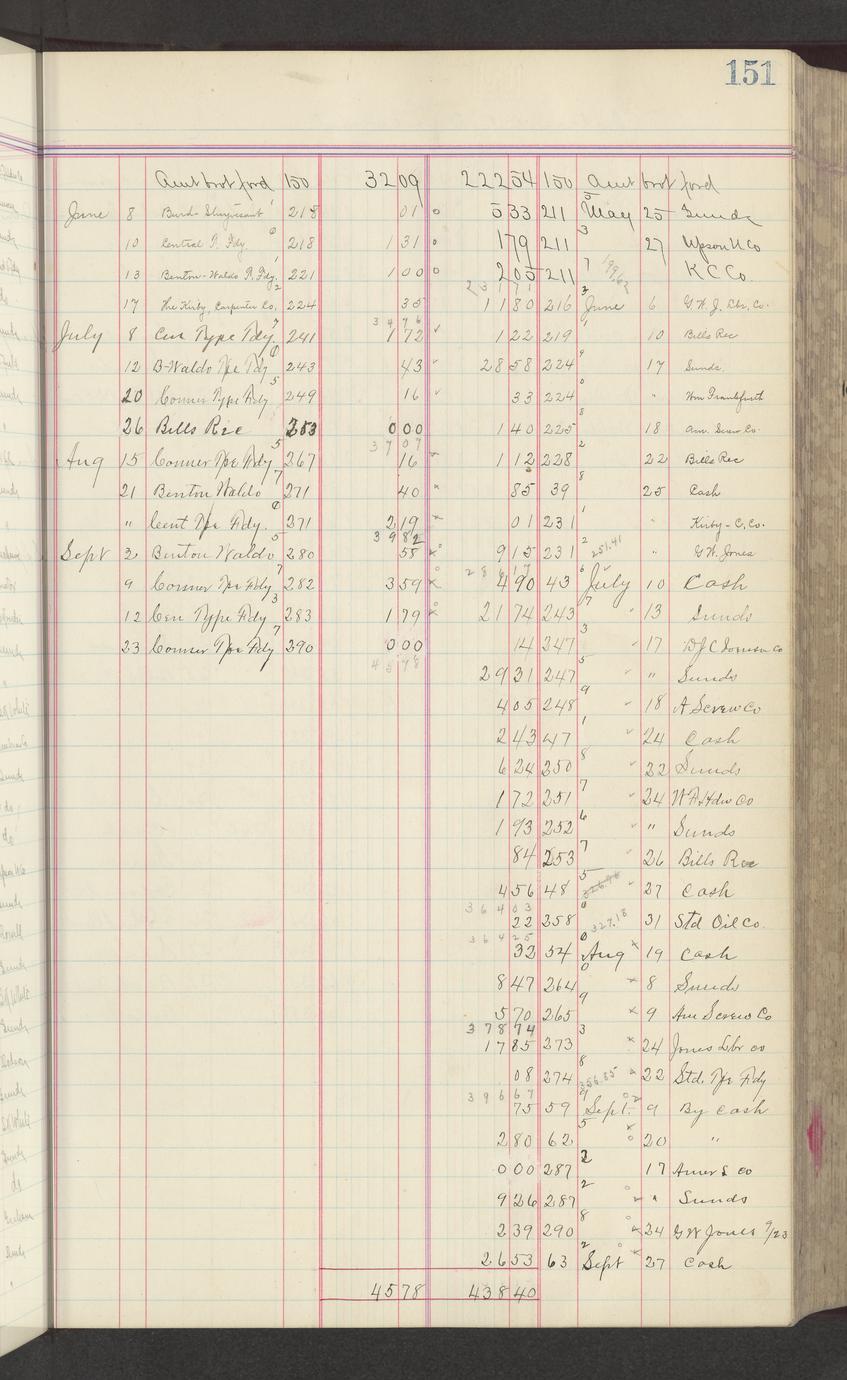 151
Amt brot ford 150 3209 22254 150 Amt brot ford
June 8 218 01 533 211 May 25 Sunds
10 Central T. Fdy. 218 1 31 179 211 27 Upson N Co
13 Benton-Waldo T. Fdy. 221 1 00 205 211 K C Co.
17 The Kirby, Carpenter Co. 224 35 11 80 216 June 6 G W. J. Lbr. Co.
July 8 Cen Type Fdy. 241 1 72 1 22 219 10 Bills Rec
12 B-Waldo Tpe Fdy 243 43 28 58 224 17 Sunds.
20 Conner Type Fdy 249 16 33 224 " Wm Frankfurth
26 Bills Rec 253 0 00 1 40 225 18 Am. Screw Co.
Aug 15 Conner Tpe Fdy 267 16 1 12 228 22 Bills Rec
21 Benton Waldo 271 40 85 39 25 Cash
" Cent Tpe Fdy. 271 2 19 01 231 " Kirby-C. Co.
Sept 2 Benton Waldo 280 55 9 15 231 " G W. Jones
9 Conner Tpe Fdy 282 3 59 4 90 43 July 10 Cash
12 Cen Type Fdy 283 1 79 21 74 243 13 Sunds
23 Conner Tpe Fdy 290 0 00 14 247 17
4578 29 31 247 " Sunds
4 05 248 18 A Screw Co
2 43 47 24 Cash
6 24 250 22 Sunds
1 72 251 24 W A Hdw Co
1 93 252 " Sunds
84 253 26 Bills Rec
4 56 48 27 Cash
36403
22 258 327.18 31 Std Oil Co.
36425
32 54 Aug 19 Cash
8 47 264 8 Sunds
5 70 265 9 Am Screw Co
37874
17 85 273 24 Jones Lbr co
08 274 356.85 22 Std. Tpe Fdy
39667
75 59 Sept. 9 By Cash
2 80 62 20 "
0 00 287 17 Amer S co
9 26 287 " Sunds
2 39 290 24 G W Jones 9/23
26 53 63 Sept 27 Cash
4578 43840